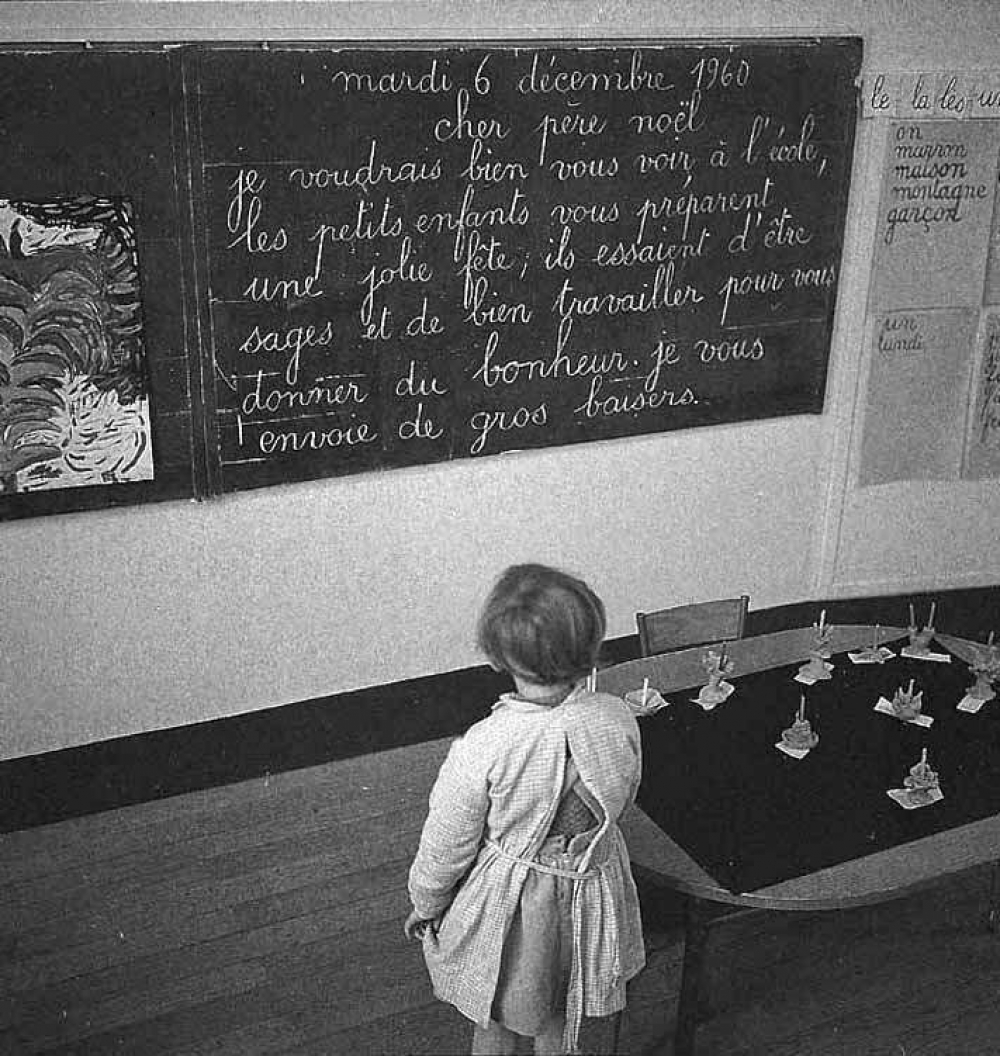 mardi 6 décembre 1960
cher père noël
je voudrais bien vous voir à l'école,
les petits enfants vous préparent
une jolie fête; ils essaient d'être
sages et de bien travailler pour vous
donner du bonheur. je vous
envoie de gros baisers.
le - la les - un
on
marron
maison
montagne
garçon
un
lundi